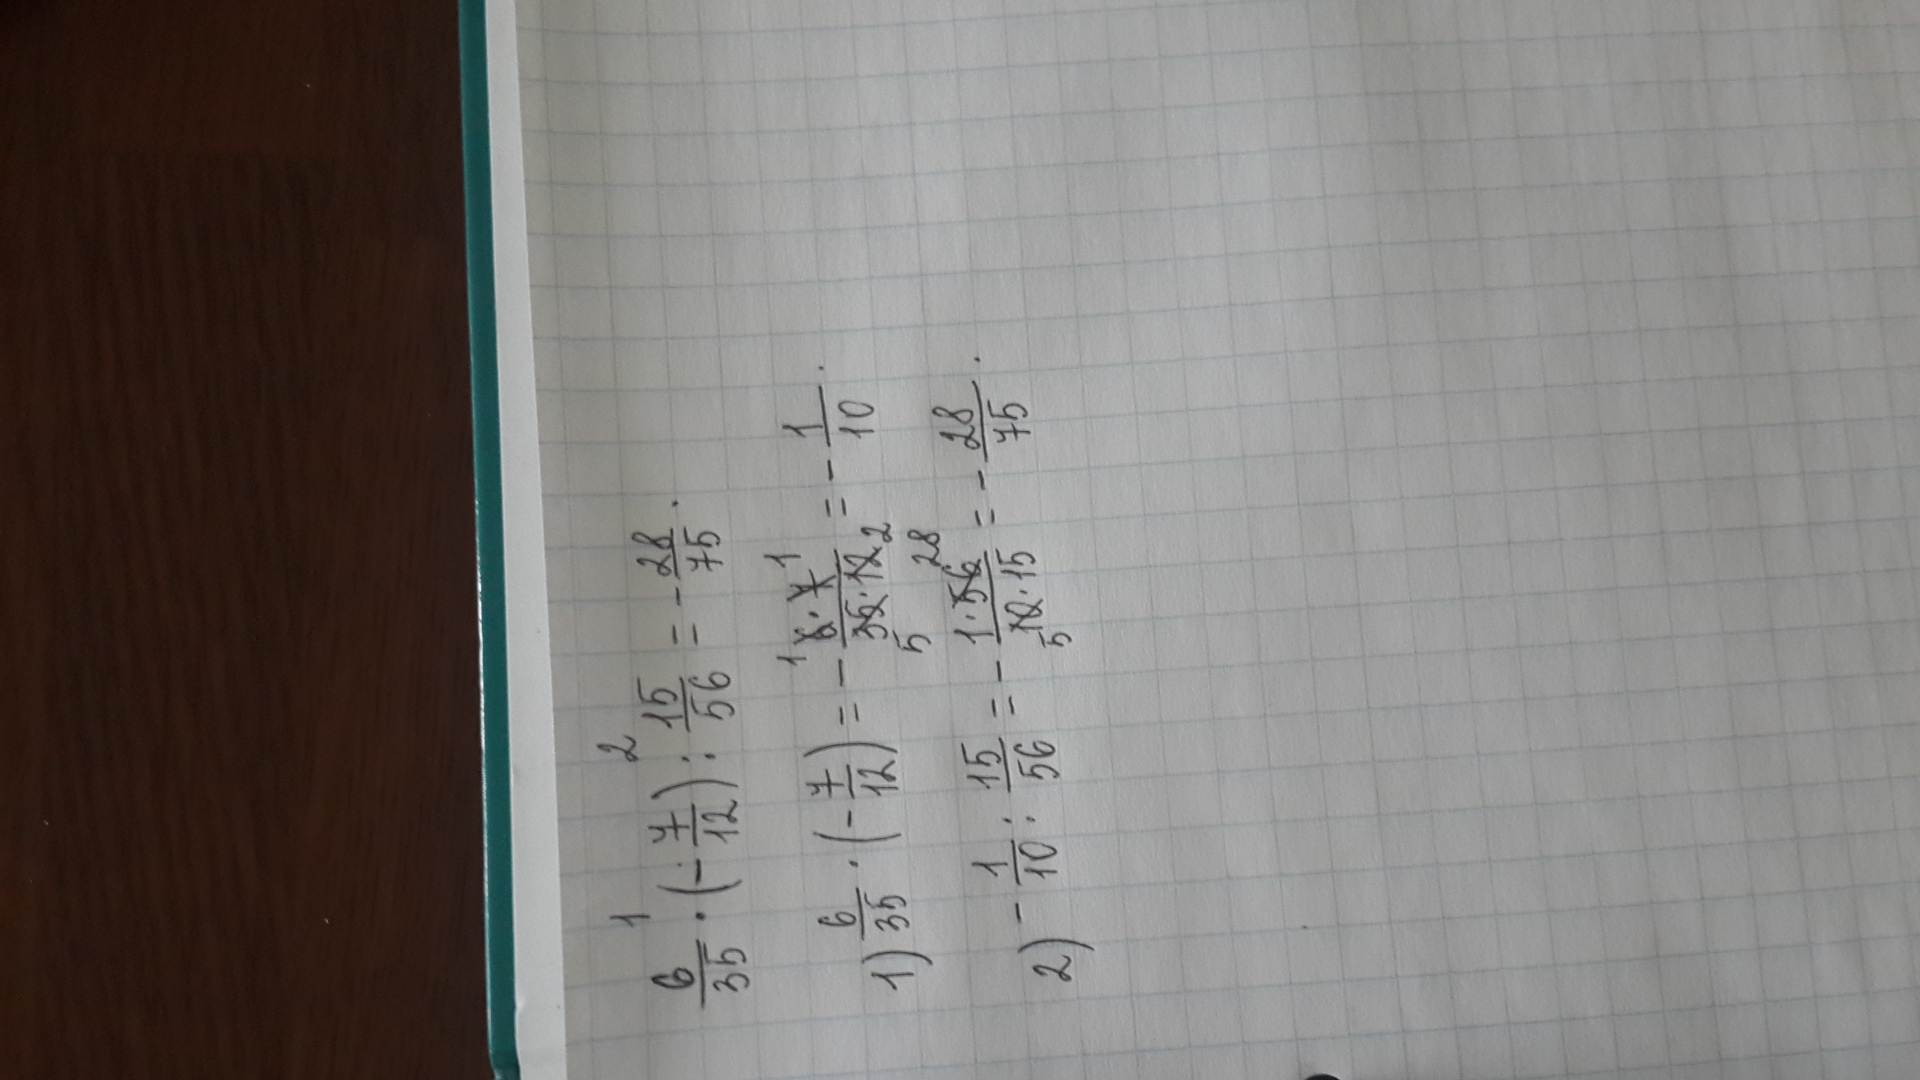 1 2
6/35 · (-7/12) : 15/56 = -28/75.
1) 6/35 · (-7/12) = - 1 6·7 1 / 5 35·12 2 = -1/10.
2) -1/10 : 15/56 = - 1·56 28 / 5 10·15 = -28/75.